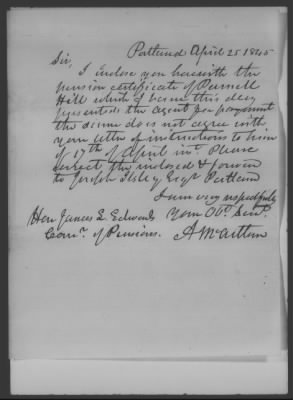 Portland April 25 1845
Sir,
I enclose you herewith the
pension certificate of Purnell
Hill which I have this day
presented the agent for payment
the same does not agree with
your letter of instructions to him
of 17th of April inst. Please
correct the enclosed & forward
to Joseph Ilsley Esqr Portland
I am very respectfully
Hon James L. Edwards Your Obt Servt
Comr of Pensions. A McArthur